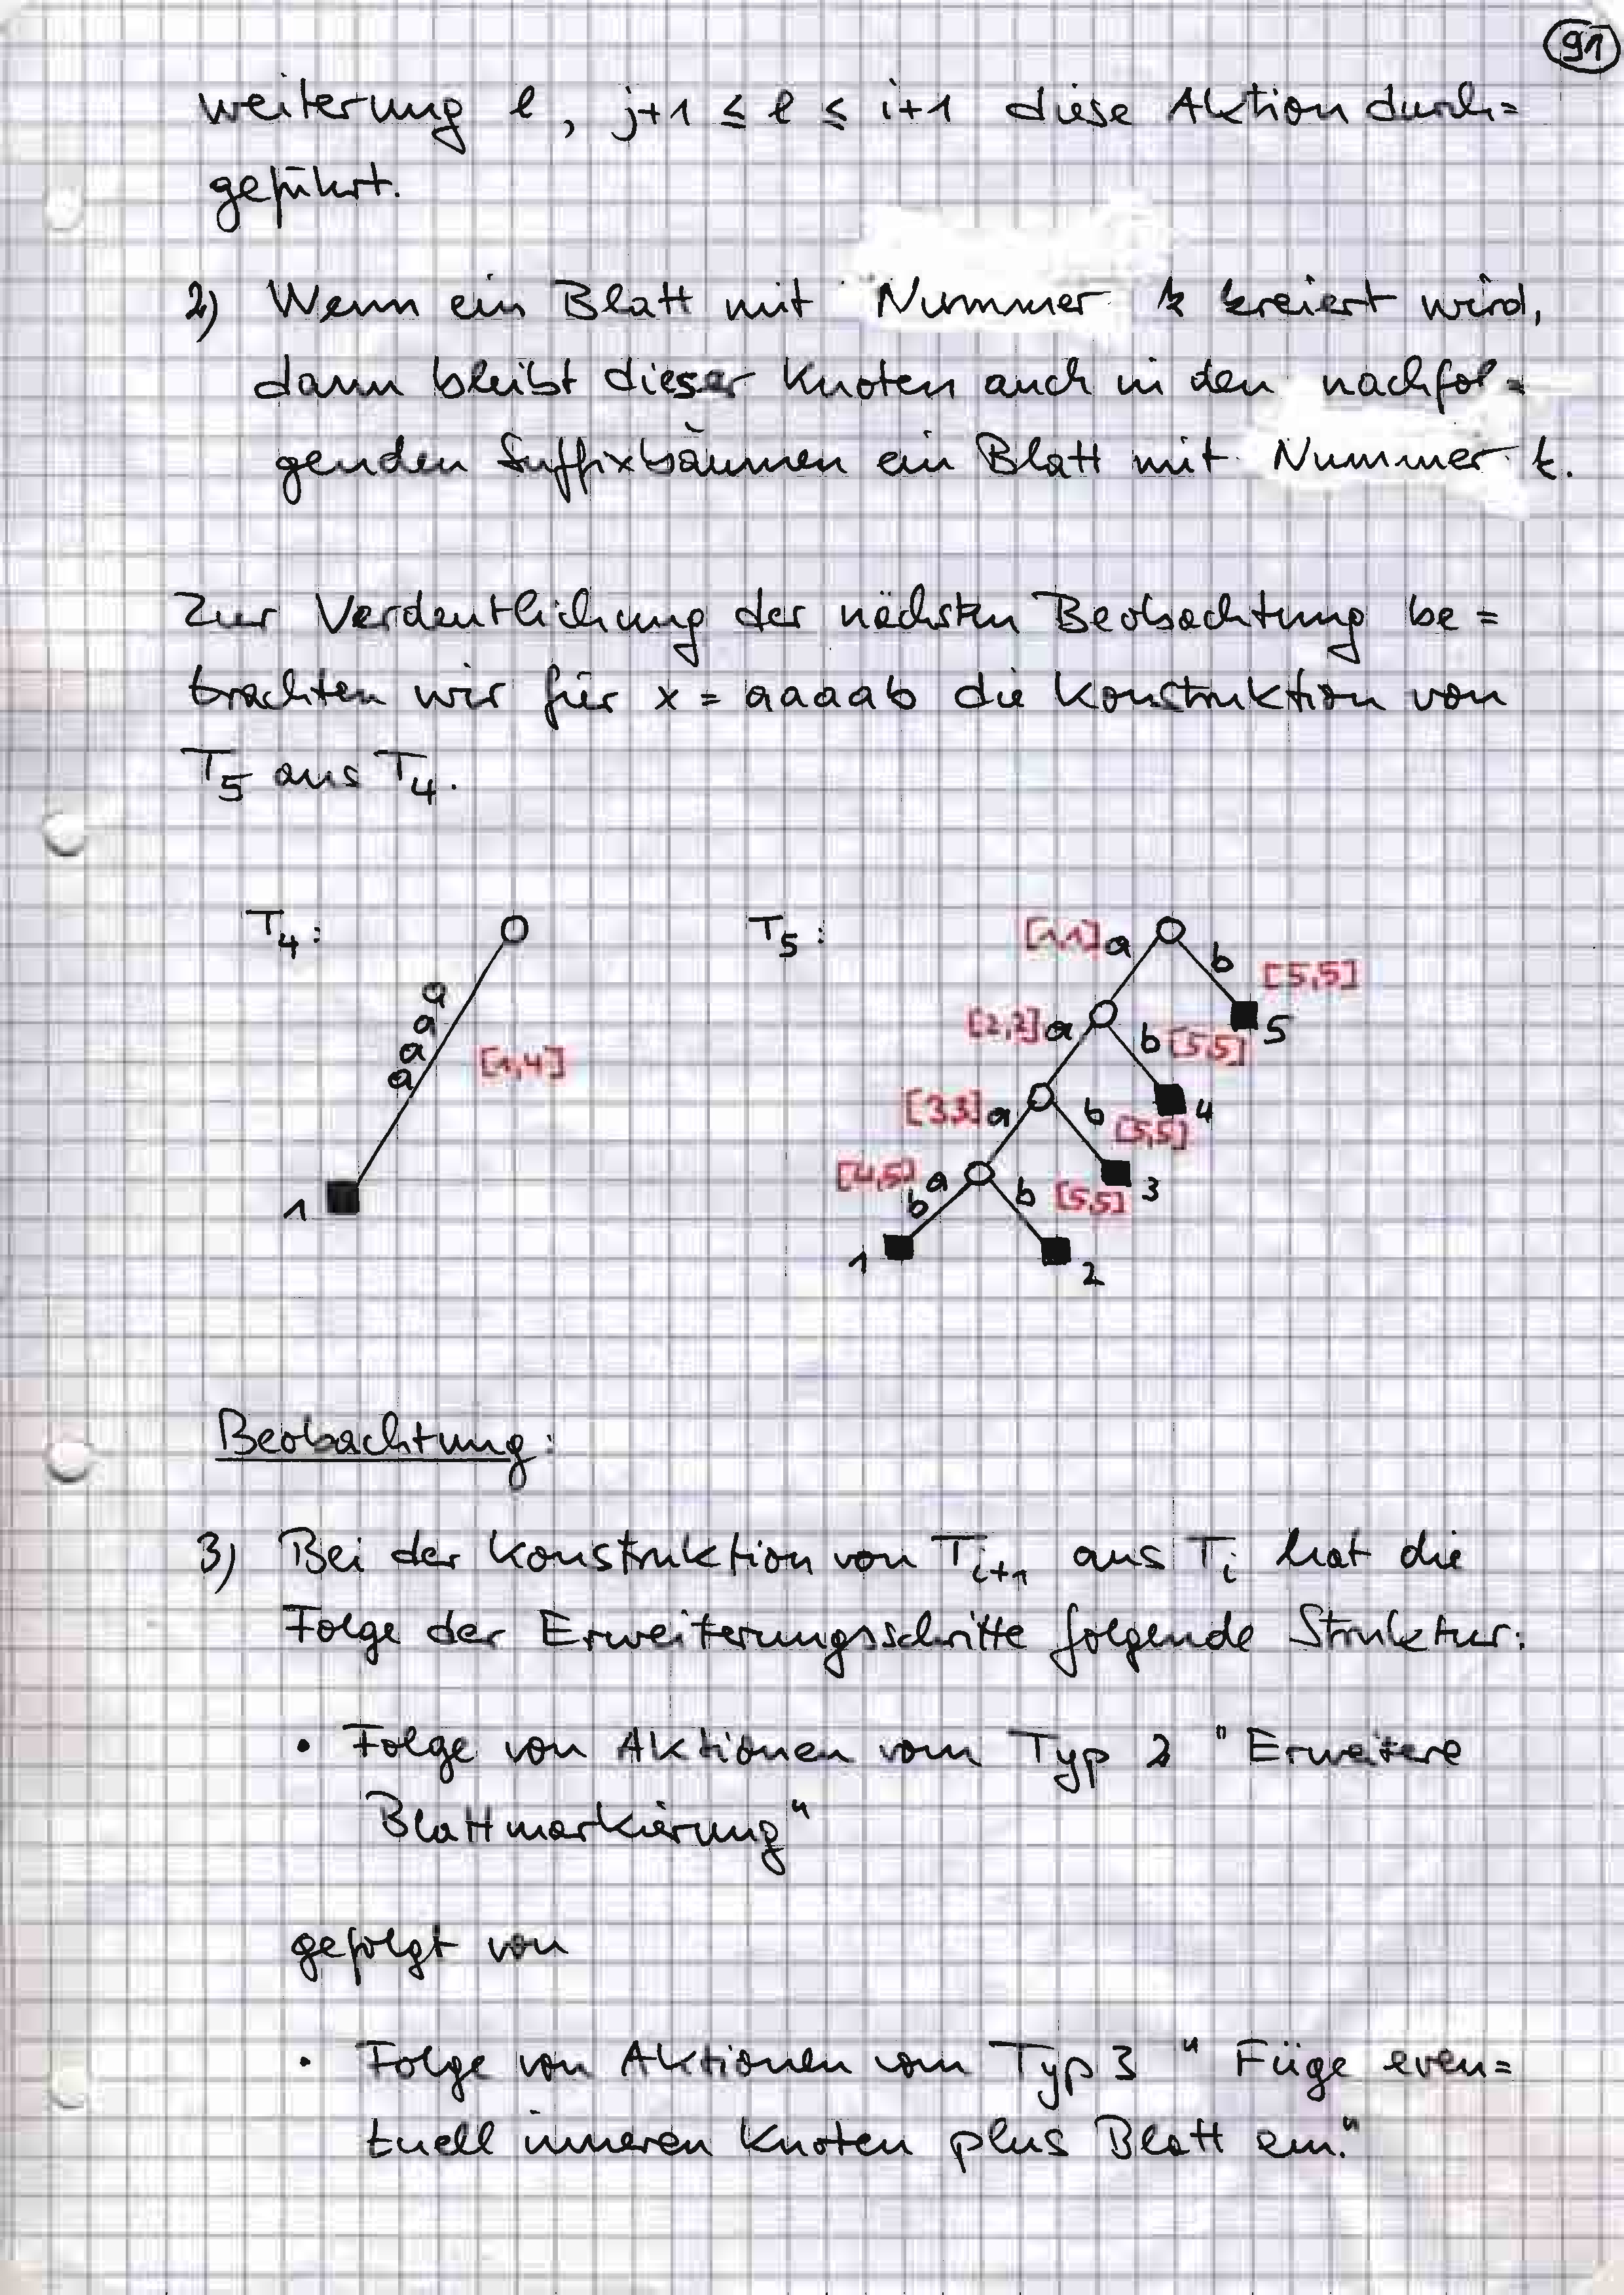 91
weiterung l, j+1 ≤ l ≤ i+1 diese Aktion durch=
geführt.
2) Wenn ein Blatt mit Nummer k kreiert wird,
dann bleibt dieser Knoten auch in den nachfol=
genden Suffixbäumen ein Blatt mit Nummer k.
Zur Verdeutlichung der nächsten Beobachtung be=
trachten wir für x = aaaab die Konstruktion von
T5 aus T4.
T4:
a
a
a
a
[1,4]
1
T5:
[1,1] a
b [5,5]
5
[2,2] a
b [5,5]
4
[3,3] a
b [5,5]
3
[4,5] a
b
b [5,5]
1
2
Beobachtung:
3) Bei der Konstruktion von Ti+1 aus Ti hat die
Folge der Erweiterungsschritte folgende Struktur:
• Folge von Aktionen vom Typ 2 "Erweitere
Blattmarkierung"
gefolgt von
• Folge von Aktionen vom Typ 3 "Füge even=
tuell inneren Knoten plus Blatt ein."